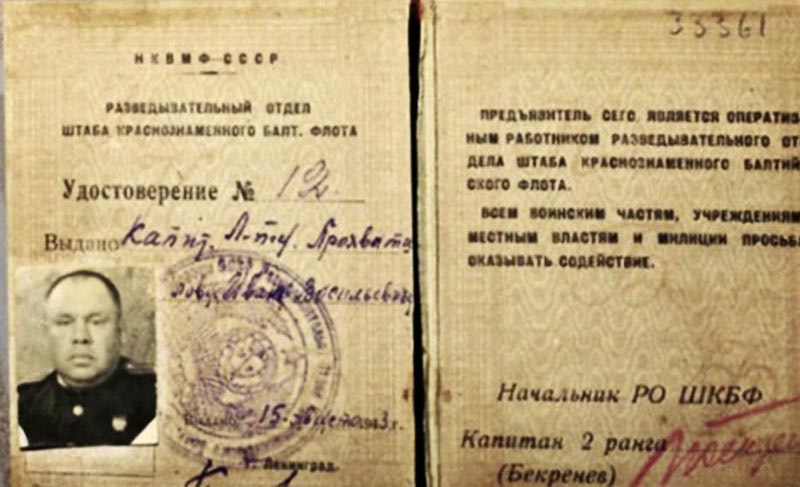 НКВМФ СССР
РАЗВЕДЫВАТЕЛЬНЫЙ ОТДЕЛ
ШТАБА КРАСНОЗНАМЕННОГО БАЛТ. ФЛОТА
Удостоверение № 12.
Выдано Капит. Л-ту. Прохвати
лову Ивану Васильевичу
Выдано 15 августа 1943 г.
г. Ленинград.
33361
ПРЕДЪЯВИТЕЛЬ СЕГО ЯВЛЯЕТСЯ ОПЕРАТИВ
НЫМ РАБОТНИКОМ РАЗВЕДЫВАТЕЛЬНОГО ОТ
ДЕЛА ШТАБА КРАСНОЗНАМЕННОГО БАЛТИЙ
СКОГО ФЛОТА.
ВСЕМ ВОИНСКИМ ЧАСТЯМ, УЧРЕЖДЕНИЯМ
МЕСТНЫМ ВЛАСТЯМ И МИЛИЦИИ ПРОСЬБА
ОКАЗЫВАТЬ СОДЕЙСТВИЕ.
Начальник РО ШКБФ
Капитан 2 ранга
(Бекренев)